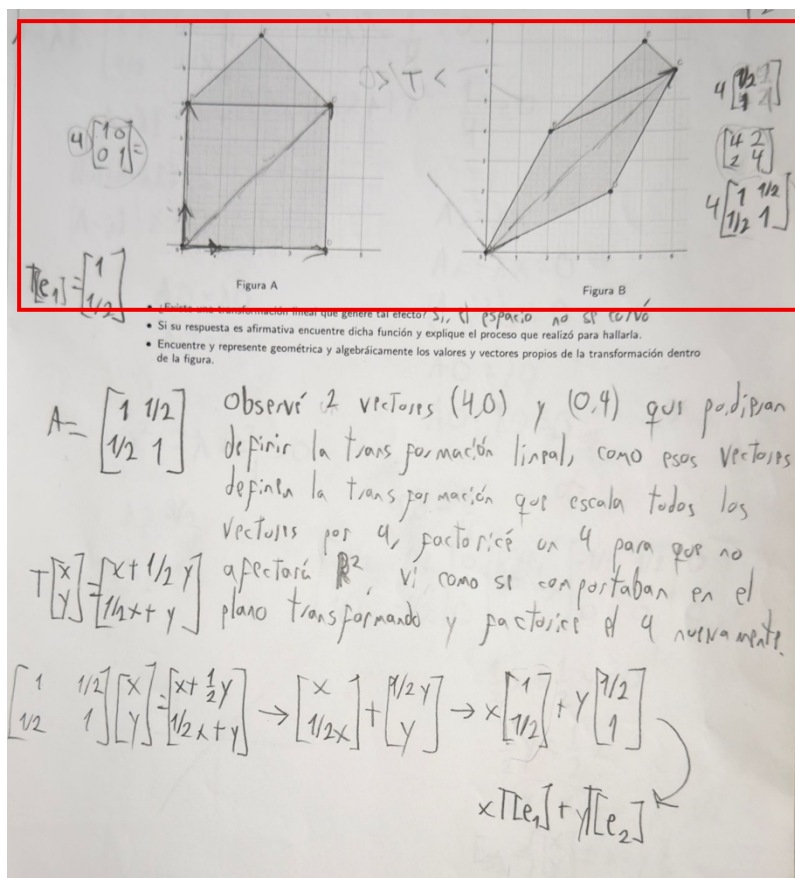 > T <
4 [1 0
0 1] =
4 [1/2 1
1 1]
[4 2
2 4]
4 [1 1/2
1/2 1]
T[e₁] = [1
1/2]
Figura A
Figura B
• ¿Existe una transformación lineal que genere tal efecto? Si, el espacio no se curvó
• Si su respuesta es afirmativa encuentre dicha función y explique el proceso que realizó para hallarla.
• Encuentre y represente geométrica y algebráicamente los valores y vectores propios de la transformación dentro
de la figura.
A = [1 1/2
1/2 1]
Observé 2 vectores (4,0) y (0,4) que pudieran
definir la transformación lineal, como esos vectores
definen la transformación que escala todos los
vectores por 4, factoricé un 4 para que no
afectara ℝ², vi como se comportaban en el
plano transformando y factorice el 4 nuevamente.
T[x
y] = [x + 1/2 y
1/2 x + y]
[1 1/2
1/2 1] [x
y] = [x + 1/2 y
1/2 x + y] → [x
1/2 x] + [1/2 y
y] → x [1
1/2] + y [1/2
1]
xT[e₁] + yT[e₂]